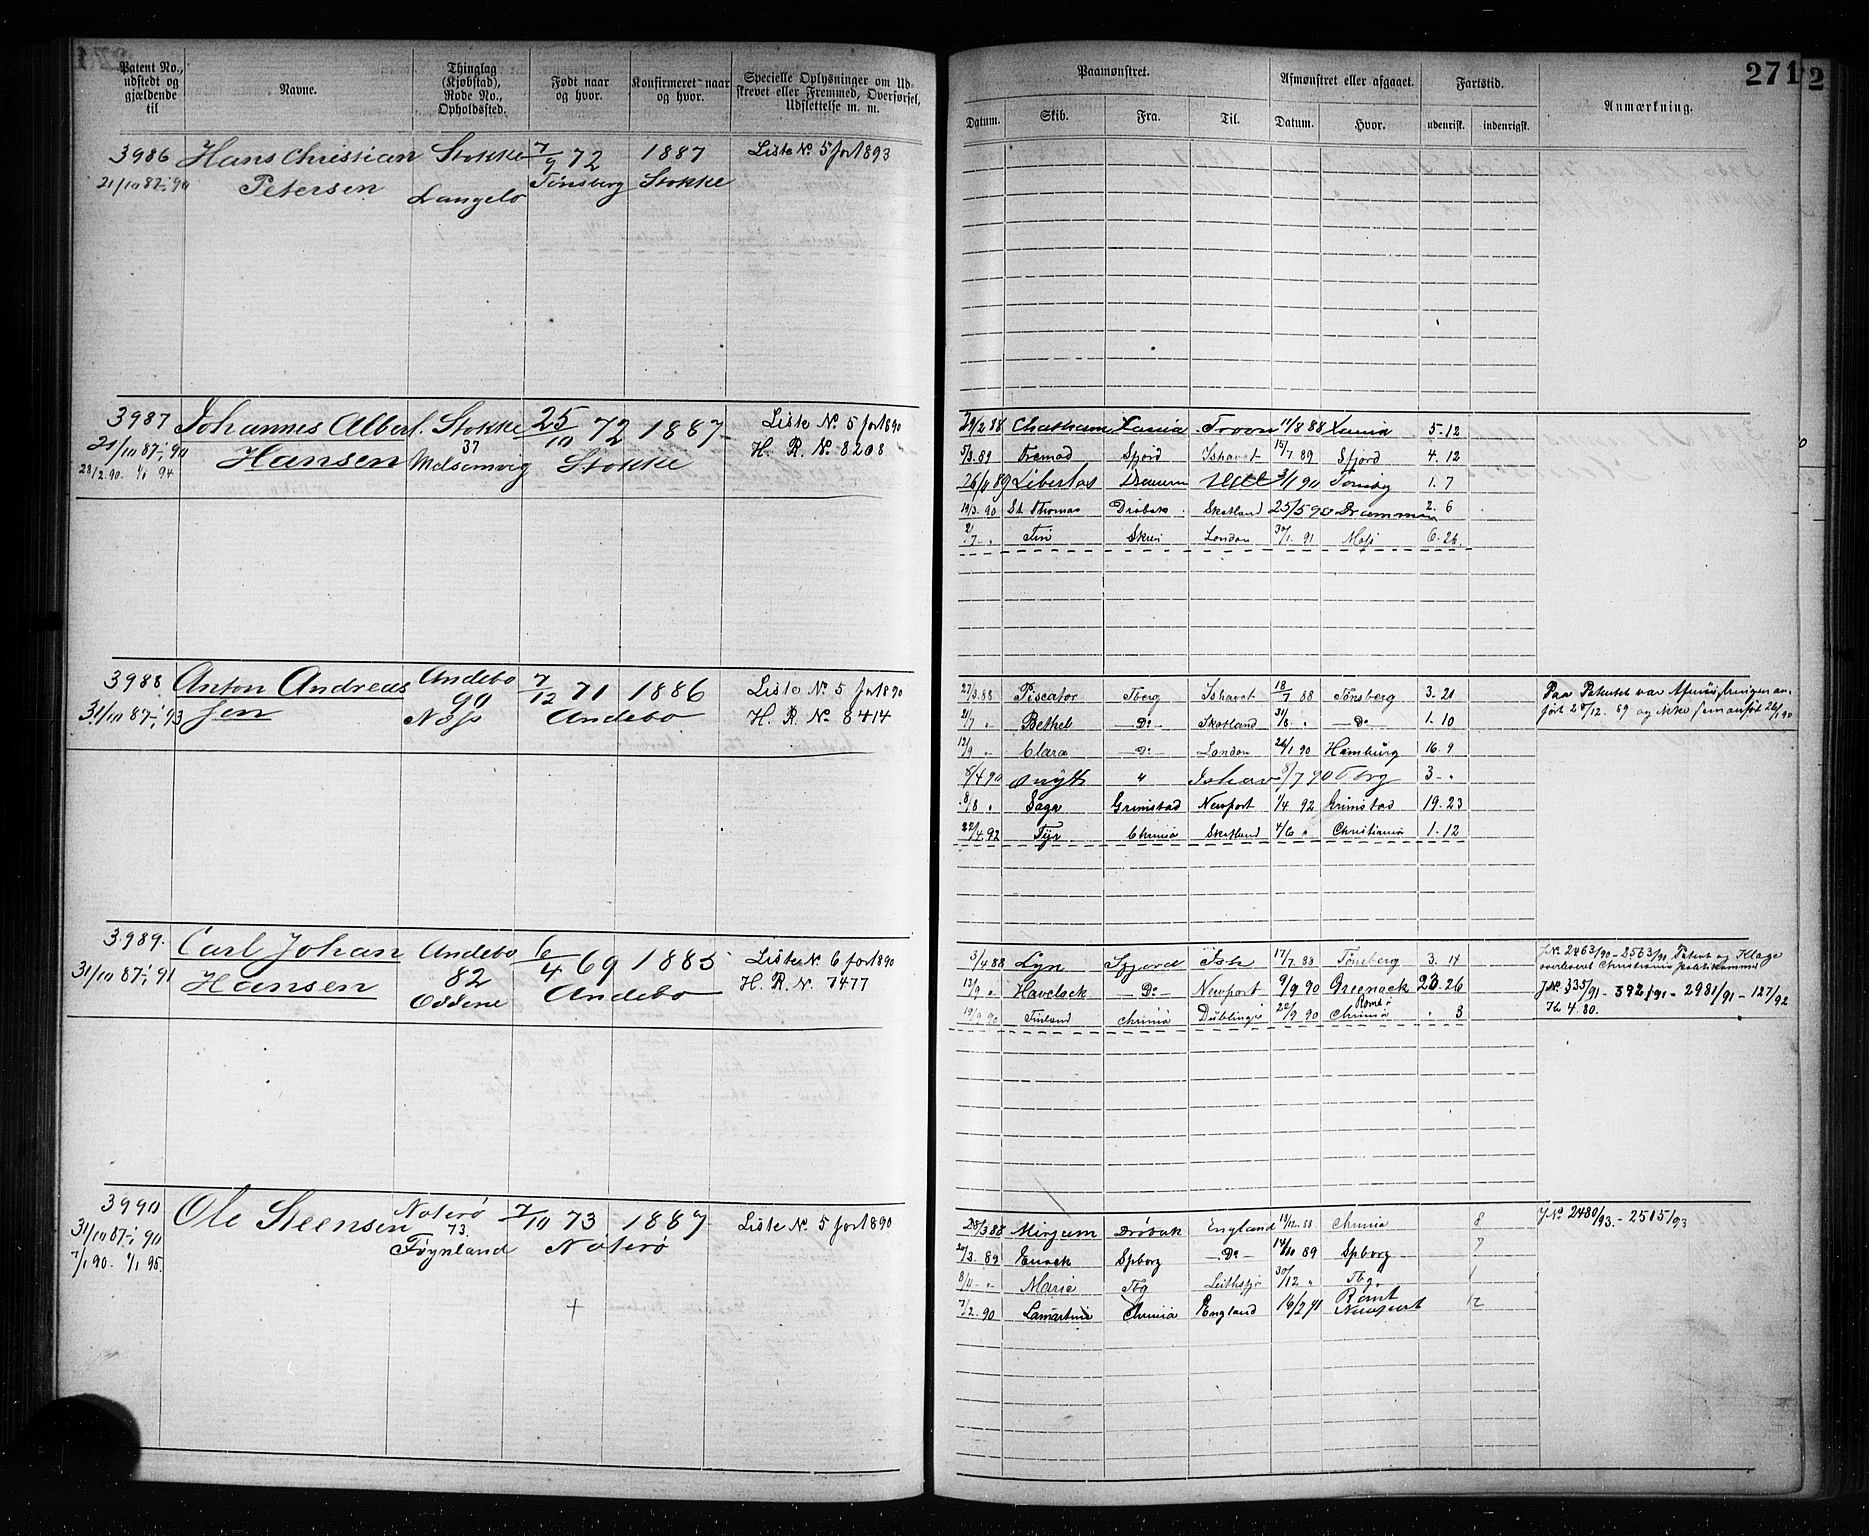 Patent No., udstedt og gjældende til
Navne.
Thinglag (Kjøbstad), Rode No., Opholdssted.
Født naar og hvor.
Konfirmeret naar og hvor.
Specielle Oplysninger om Udskrevet eller Fremmed, Overførsel, Udslettelse m. m.
Paamønstret.
Afmønstret eller afgaaet.
Fartstid.
Anmærkning.
271
2
Datum. Skib. Fra. Til. Datum. Hvor. udenrisk. indenrigsk.
3986 Hans Christian Stokke 7/9 72 1887 Liste No 5 for 1893
21/10 87 - 1/1 90 Petersen Langelo Tønsberg Stokke
3987 Johannes Albert Stokke 25/10 72 1887 Liste No 5 for 1890
21/10 87 - 1/1 90 Hansen 37 Melsomvig Stokke H. R. No 8208
28/2 90. 1/1 94
29/2 88 Chatham Xania Troon 11/8 88 Xania 5. 12
5/3. 89 Fremad Sfjord Ishavet 15/7 89 Sfjord 4. 12
26/11 89 Libertas Dramm 3/1 90 Tønsbg 1. 7
19/3. 90 St Thomas Drøbak Skotland 25/5 90 Drammen 2. 6
2/7 - " Skien London 30/1. 91 Moss 6. 26.
3988 Anton Andreas Andebo 7/12 71 1886 Liste No 5 for 1890
31/10 87 - 1/1 93 sen 90 Andebo H. R. No 8414
27/3. 88 Piscator Tberg Ishavet 18/7 88 Tønsberg 3. 21
21/7 " Bethel - Do - Skotland 31/8 " - Do - 1. 10
12/9 " Clara - Do London 26/1 90 Hamburg 16. 9
8/4 90 " Ishav 8/7 90 Tbrg 3 - "
8/8 " Saga Grimstad Newport 1/4 92 Grimstad 19. 23
22/4. 92 Tyr Chrnia Skotland 4/6 " Christiania 1. 12
Paa Patentet var
ført 28/12. 89 og ikke som anført 26/1 90
3989. Carl Johan Andebo 6/4 69 1885 Liste No 6 for 1890
31/10 87 - 1/1 91 Hansen 82 Andebo H. R. No 7477
3/4 88 Lyn Ish 17/7. 88 Tønsberg 3. 14
13/9 " Havelock - Do - Newport 9/9 90 Greenock 23. 26
19/9 90 Finland Chrnia 22/9 90 Rømt i Chrnia " 3
J. No 2463/90 - 2563/90 Patent og Klage
overleveret Christiania politikammer
J No 335/91 - 392/91 - 2981/91 - 127/92
4. 80.
3990 Ole Steensen Nøterø 7/10 73 1887 Liste No 5 for 1890
31/10 87 - 1/1 90 73. Føynland Nøterø
7/1 90. 1/1 95.
28/3 88 Mirjam Drøbak England 19/12. 88 Chrnia 8
20/3. 89 Enock Spborg - Do - 14/10 89 Spborg 7
8/11 - " Maria Tbg 30/12 " Tbg. 1
7/2. 90 Lamartine Chrnia England 16/2 91 Rømt Newport 12
J No 2480/93. - 2515/93